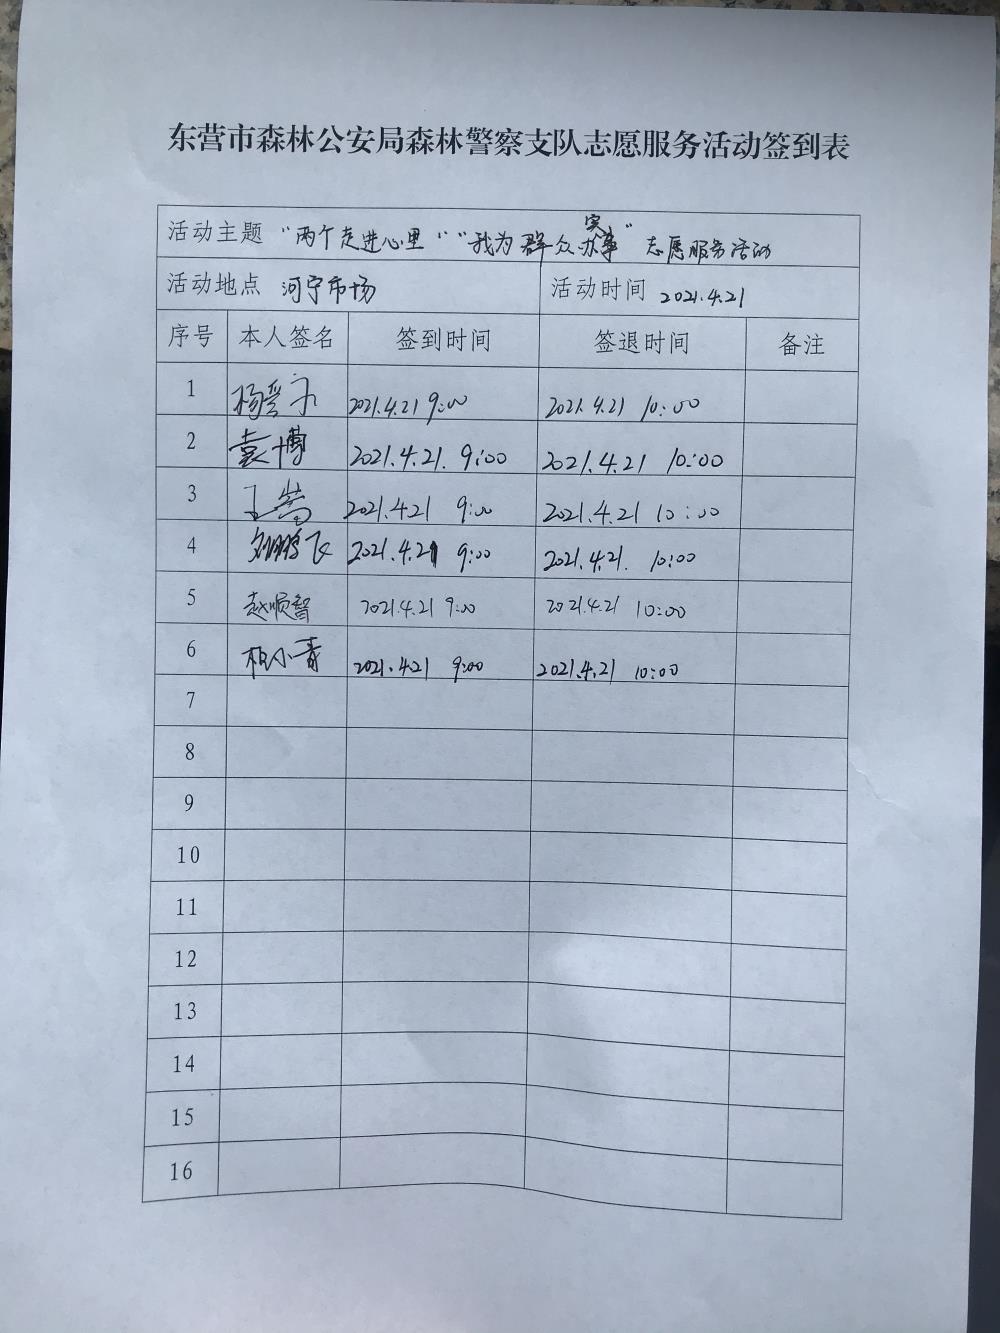 东营市森林公安局森林警察支队志愿服务活动签到表
活动主题 "两个走进心里" "我为群众办实事" 志愿服务活动
活动地点 河宁市场 活动时间 2021.4.21
序号 本人签名 签到时间 签退时间 备注
1 杨 2021.4.21 9:00 2021.4.21 10:00
2 袁博 2021.4.21. 9:00 2021.4.21 10:00
3 王嵩 2021.4.21 9:00 2021.4.21 10:00
4 刘鹏飞 2021.4.21 9:00 2021.4.21. 10:00
5 赵顺智 2021.4.21 9:00 2021.4.21 10:00
6 小青 2021.4.21 9:00 2021.4.21 10:00
7
8
9
10
11
12
13
14
15
16